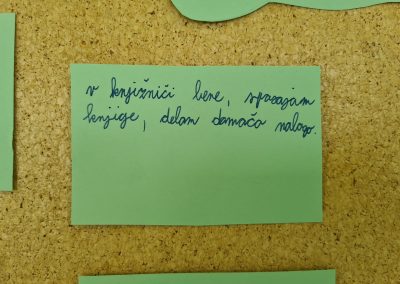 v knjižniči bere, spozajam
knjige, delam domačo nalogo.